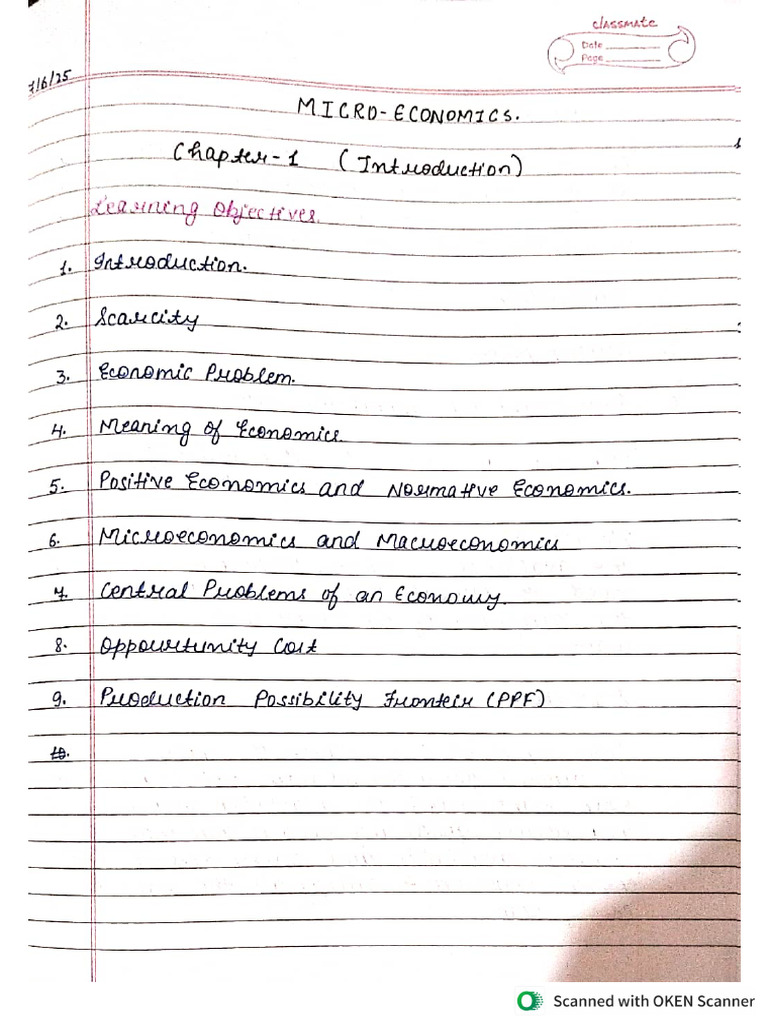 classmate
Date
Page
7/6/25
MICRO-ECONOMICS.
Chapter-1 (Introduction)
Learning Objectives.
1. Introduction.
2. Scarcity
3. Economic Problem.
4. Meaning of Economics.
5. Positive Economics and Normative Economics.
6. Microeconomics and Macroeconomics
7. Central Problems of an Economy.
8. Oppourtunity Cost
9. Production Possibility Fronteir (PPF)
10.
Scanned with OKEN Scanner